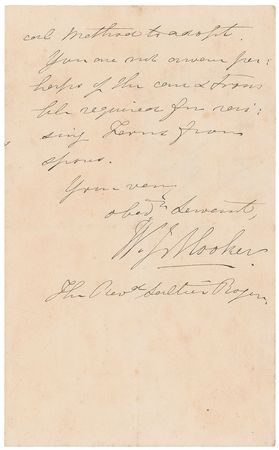 cal method to adopt.
You are not aware per:
:haps of the care & trou:
ble required for rai:
sing Ferns from
spores.
Your very
obed.t Servant,
W. J. Hooker
The Rev.d Rogers.